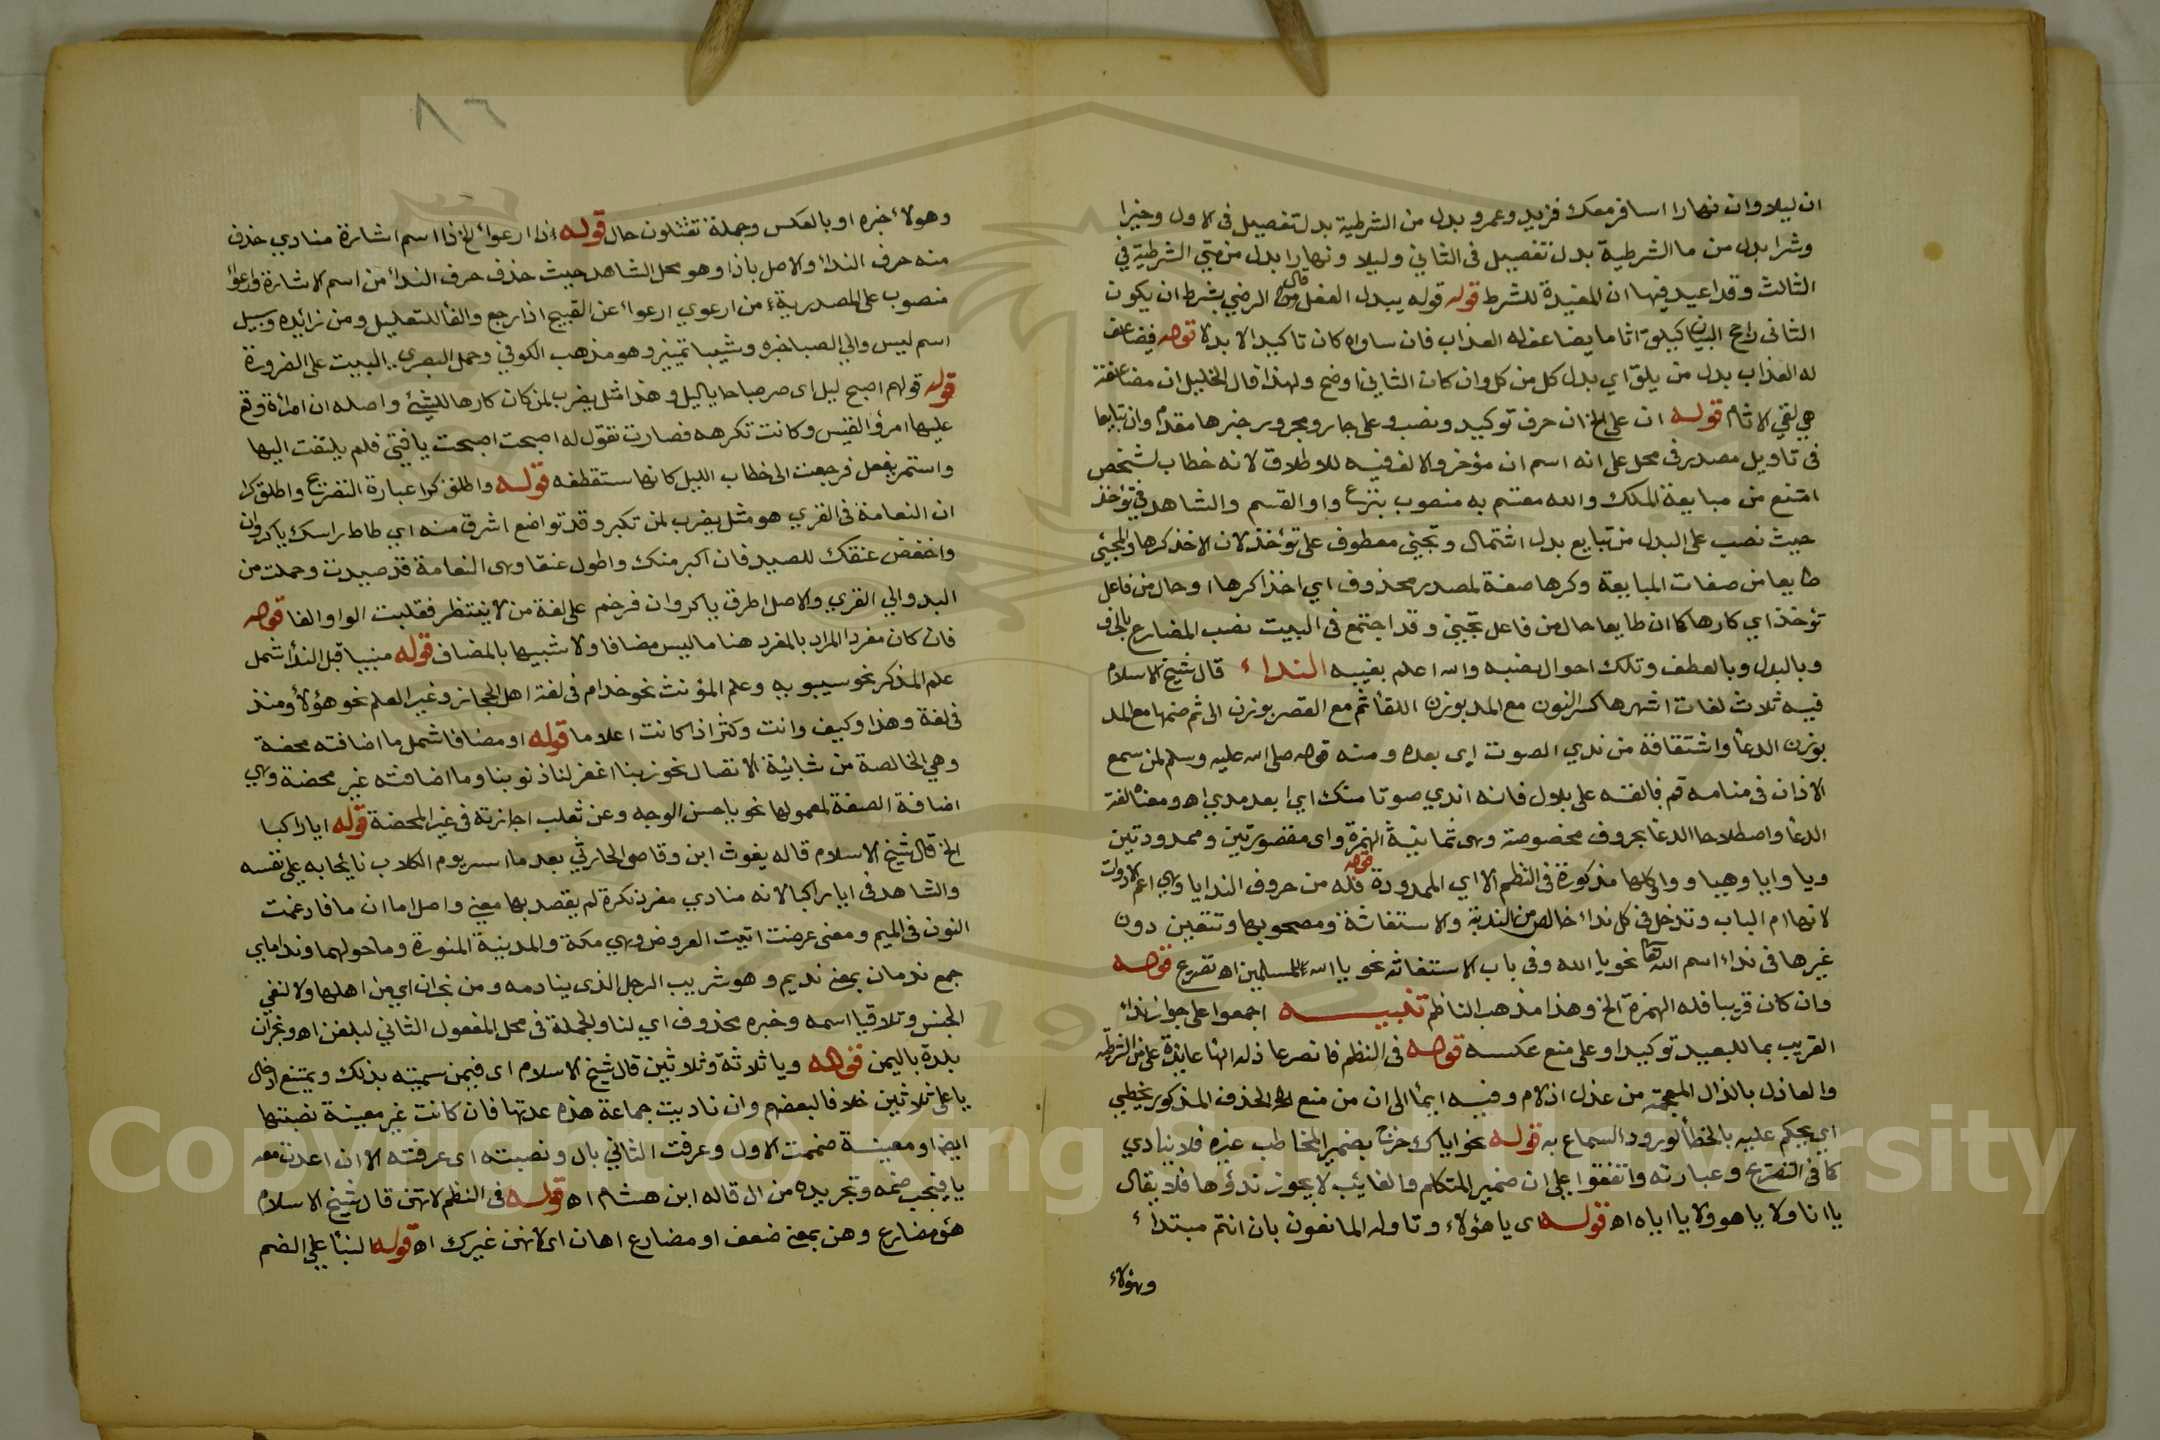 ان ليلا وان نهارا اسافر معك فزيد وعمرو بدل من الشرطية بدل تفصيل فى الاول وخيرا
وشرا بدل من ما الشرطية بدل تفصيل فى الثاني وليلا ونهارا بدل من متي الشرطية في
الثالث وقد اعيد فيها ان المفيدة للشرط قوله قوله يبدل الفعل من قال الرضي بشرط ان يكون
الثانى راجح البيان كيلق اثاما يضاعف له العذاب فان ساواه كان تاكيدا لا بدلا قوله فيضاعف
له العذاب بدل من يلق اي بدل كل من كل وان كان الثاني اوضح ولهذا قال الخليل ان مضاعفة
هي لقي الاثام قوله ان علي الخ ان حرف توكيد ونصب وعلى جار ومجرور خبرها مقدم وان تبايعا
فى تاويل مصدر فى محل على انه اسم ان مؤخر والالف فيه للاطلاق لانه خطاب لشخص
امتنع من مبايعة الملك والله مقسم به منصوب بنزع واو القسم والشاهد في تؤخذ
حيث نصب على البدل من تبايع بدل اشتمال وتجيئ معطوف على تؤخذ لان الاخذ كرها والمجيئ
طايعا من صفات المبايعة وكرها صفة لمصدر محذوف اي اخذا كرها او حال من فاعل
تؤخذ اي كارها كما ان طايعا حال من فاعل تجيئ وقد اجتمع فى البيت نصب المضارع بالحرف
وبالبدل وبالعطف وتلك احوال نصبه والله اعلم بغيبه النداء قال شيخ الاسلام
فيه ثلاث لغات اشهرها كسر النون مع المد بوزن اللقاء ثم مع القصر بوزن الى ثم ضمها مع المد
بوزن الدعاء واشتقاقه من ندي الصوت اي بعده ومنه قوله صلى الله عليه وسلم لمن سمع
الاذان فى منامه قم فالقه على بلال فانه اندي صوتا منك اي ابعد مدي اه ومعناه لغة
الدعاء واصطلاحا الدعا بحروف مخصوصة وهى ثمانية الهمزة واى مقصورتين وممدودتين
ويا وايا وهيا ووا وكلها مذكورة فى النظم الا اي الممدودة قوله قله من حروف الندا يا وهي اعم الادوات
لانها ام الباب وتدخل فى كل نداء خالص من الندبة والاستغاثة ومصحوبها وتتعين دون
غيرها فى نداء اسم الله تعالى نحو يا الله وفى باب الاستغاثه نحو يا الله للمسلمين اه تصريح قوله
وان كان قريبا فله الهمزة الخ وهذا مذهب الناظم تنبيه اجمعوا على جواز نداء
القريب بما للبعيد توكيدا وعلى منع عكسه قوله فى النظم فانصر عاذله الها عايدة على من الشرطية
والعاذل بالذال المعجمة من عذل اذ لام وفيه ايماء الى ان من منع الحذف المذكور يخطي
اي يحكم عليه بالخطأ لورود السماع به قوله نحو اياك خرج بضمير المخاطب غيره فلا ينادي
كما فى التصريح وعبارته واتفقوا على ان ضمير المتكلم والغائب لا يجوز ندؤها فلا يقال
يا انا ولا يا هو ولا يا اياه اه قوله اى يا هؤلاء وتاوله المانعون بان انتم مبتداء
وهؤلاء
٨٦
وهولاء خبره او بالعكس وجملة تقتلون حال قوله اذا ارعواء الخ ذا اسم اشارة منادي حذف
منه حرف النداء والاصل باذا وهو محل الشاهد حيث حذف حرف النداء من اسم الاشارة وارعواء
منصوب على المصدرية من ارعوي ارعواء عن القبيح اذا رجع والفاء للتعليل ومن زائده وسبيل
اسم ليس والي الصبا خبره وشيبا تمييز وهو مذهب الكوفي وحمل البصري البيت على الضرورة
قوله قولهم اصبح ليل اى صر صباحا ياليل وهذا مثل يضرب لمن كان كارها للشيئ واصله ان امراة وقع
عليها امرؤ القيس وكانت تكرهه فصارت تقول له اصبحت اصبحت يافتي فلم يلتفت اليها
واستمر يفعل فرجعت الى خطاب الليل كانها ستقطفه قوله واطلق كرا عبارة التصريح واطلق كرا
ان النعامة فى القري هو مثل يضرب لمن تكبر وقد تواضع اشرف منه اي طاطا راسك يا كروان
واخفض عنقك للصيد فان اكبر منك واطول عنقا وهى النعامة قد صيدت وحملت من
البدو الي القري والاصل اطرق يا كروان فرخم على لغة من لا ينتظر فقلبت الواو الفا قوله
فان كان مفرد المراد بالمفرد هنا ما ليس مضافا ولا شبيها بالمضاف قوله مبنيا قبل النداء شمل
علم المذكر نحو سيبويه وعلم المؤنث نحو خدام فى لغة اهل الحجاز وغير العلم نحو هؤلاء ومنذ
فى لغة وهذا وكيف وانت وكثر اذا كانت اعلاما قوله او مضافا شمل ما اضافته محضة
وهي الخالصة من شائبة الانفصال نحو ربنا اغفر لنا ذنوبنا وما اضافته غير محضة وهي
اضافة الصفة لمعمولها نحو يا حسن الوجه وعن ثعلب اجازته فى غير المحضة قوله ايا راكبا
الخ قال شيخ الاسلام قاله يغوث ابن وقاص الحارثي بعدما اسر يوم الكلاب نايحا به على نفسه
والشاهد فى ايا راكبا لانه منادي مفرد نكرة لم يقصد بها معين واصل اما ان ما فادغمت
النون فى الميم ومعنى عرضت اتيت العروض وهي مكة والمدينة المنورة وما حولهما ونداماي
جمع ندمان بمعنى نديم وهو شريب الرجل الذى ينادمه ومن نجران اي من اهلها ولا لنفي
الجنس وتلاقيا اسمه وخبره محذوف اي لنا والجملة فى محل المفعول الثاني لبلغن اه ونجران
بلدة باليمن قوله ويا ثلاثة وثلاثين قال شيخ الاسلام اى فيمن سميته بذلك ويمتنع ادخال
يا على ثلاثين خلافا لبعضهم وان ناديت جماعة هذه عدتها فان كانت غير معينة نصبتها
ايضا او معينة ضممت الاول وعرفت الثاني بال ونصبته اى عرفته الا ان اعدت معه
يا فيجب ضمه وتجريده من ال قاله ابن هشام اه قوله فى النظم لا تهن قال شيخ الاسلام
هو مضارع وهن بمعنى ضعف او مضارع اهان اى لا تهن غيرك اه قوله البناء على الضم
Copyright © King Saud University